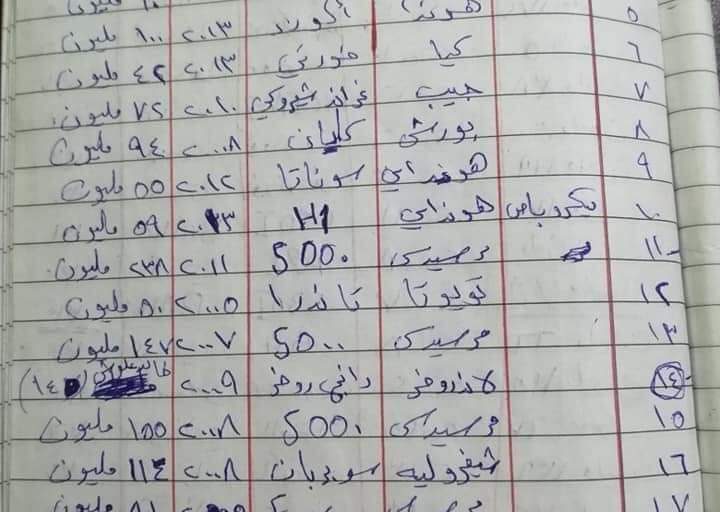 ٥ هوندا أكورد ٢٠١٣ ١٠٠ مليون
٦ كيا ٢٠١٣ ٤٢ مليون
٧ جيب غراند شيروكي ٢٠١٠ ٧٢ مليون
٨ بورش كايان ٢٠٠٨ ٩٤ مليون
٩ هونداي سوناتا ٢٠١٢ ٥٥ مليون
١٠ مكروباص هونداي H1 ٢٠١٣ ٥٩ مليون
١١ مرسيدس S٥٠٠ ٢٠١١ ٢٣٨ مليون
١٢ تويوتا تاندرا ٢٠٠٥ ٨٠ مليون
١٣ مرسيدس S٥٠٠ ٢٠٠٧ ١٤٧ مليون
١٤ لاندروفر رانج روفر ٢٠٠٩
١٥ مرسيدس S٥٠٠ ٢٠٠٨ ١٥٥ مليون
١٦ شيفروليه سوبربان ٢٠٠٨ ١١٤ مليون
١٧